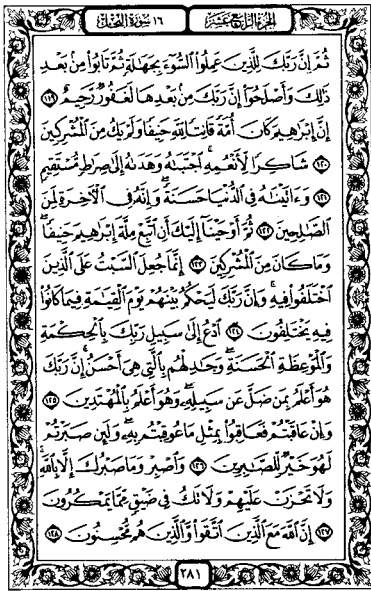 الجزء الرابع عشر ١٦ سورة النحل
ثُمَّ إِنَّ رَبَّكَ لِلَّذِينَ عَمِلُوا۟ ٱلسُّوٓءَ بِجَهَـٰلَةٍ ثُمَّ تَابُوا۟ مِنۢ بَعْدِ
ذَٰلِكَ وَأَصْلَحُوٓا۟ إِنَّ رَبَّكَ مِنۢ بَعْدِهَا لَغَفُورٌ رَّحِيمٌ ١١٩
إِنَّ إِبْرَٰهِيمَ كَانَ أُمَّةً قَانِتًا لِّلَّهِ حَنِيفًا وَلَمْ يَكُ مِنَ ٱلْمُشْرِكِينَ
١٢٠ شَاكِرًا لِّأَنْعُمِهِ ۚ ٱجْتَبَىٰهُ وَهَدَىٰهُ إِلَىٰ صِرَٰطٍ مُّسْتَقِيمٍ
١٢١ وَءَاتَيْنَـٰهُ فِى ٱلدُّنْيَا حَسَنَةً ۖ وَإِنَّهُۥ فِى ٱلْـَٔاخِرَةِ لَمِنَ
ٱلصَّـٰلِحِينَ ١٢٢ ثُمَّ أَوْحَيْنَآ إِلَيْكَ أَنِ ٱتَّبِعْ مِلَّةَ إِبْرَٰهِيمَ حَنِيفًا ۖ
وَمَا كَانَ مِنَ ٱلْمُشْرِكِينَ ١٢٣ إِنَّمَا جُعِلَ ٱلسَّبْتُ عَلَى ٱلَّذِينَ
ٱخْتَلَفُوا۟ فِيهِ ۚ وَإِنَّ رَبَّكَ لَيَحْكُمُ بَيْنَهُمْ يَوْمَ ٱلْقِيَـٰمَةِ فِيمَا كَانُوا۟
فِيهِ يَخْتَلِفُونَ ١٢٤ ٱدْعُ إِلَىٰ سَبِيلِ رَبِّكَ بِٱلْحِكْمَةِ
وَٱلْمَوْعِظَةِ ٱلْحَسَنَةِ ۖ وَجَـٰدِلْهُم بِٱلَّتِى هِىَ أَحْسَنُ ۚ إِنَّ رَبَّكَ
هُوَ أَعْلَمُ بِمَن ضَلَّ عَن سَبِيلِهِۦ ۖ وَهُوَ أَعْلَمُ بِٱلْمُهْتَدِينَ ١٢٥
وَإِنْ عَاقَبْتُمْ فَعَاقِبُوا۟ بِمِثْلِ مَا عُوقِبْتُم بِهِۦ ۖ وَلَئِن صَبَرْتُمْ
لَهُوَ خَيْرٌ لِّلصَّـٰبِرِينَ ١٢٦ وَٱصْبِرْ وَمَا صَبْرُكَ إِلَّا بِٱللَّهِ ۚ
وَلَا تَحْزَنْ عَلَيْهِمْ وَلَا تَكُ فِى ضَيْقٍ مِّمَّا يَمْكُرُونَ
١٢٧ إِنَّ ٱللَّهَ مَعَ ٱلَّذِينَ ٱتَّقَوا۟ وَّٱلَّذِينَ هُم مُّحْسِنُونَ ١٢٨
٢٨١